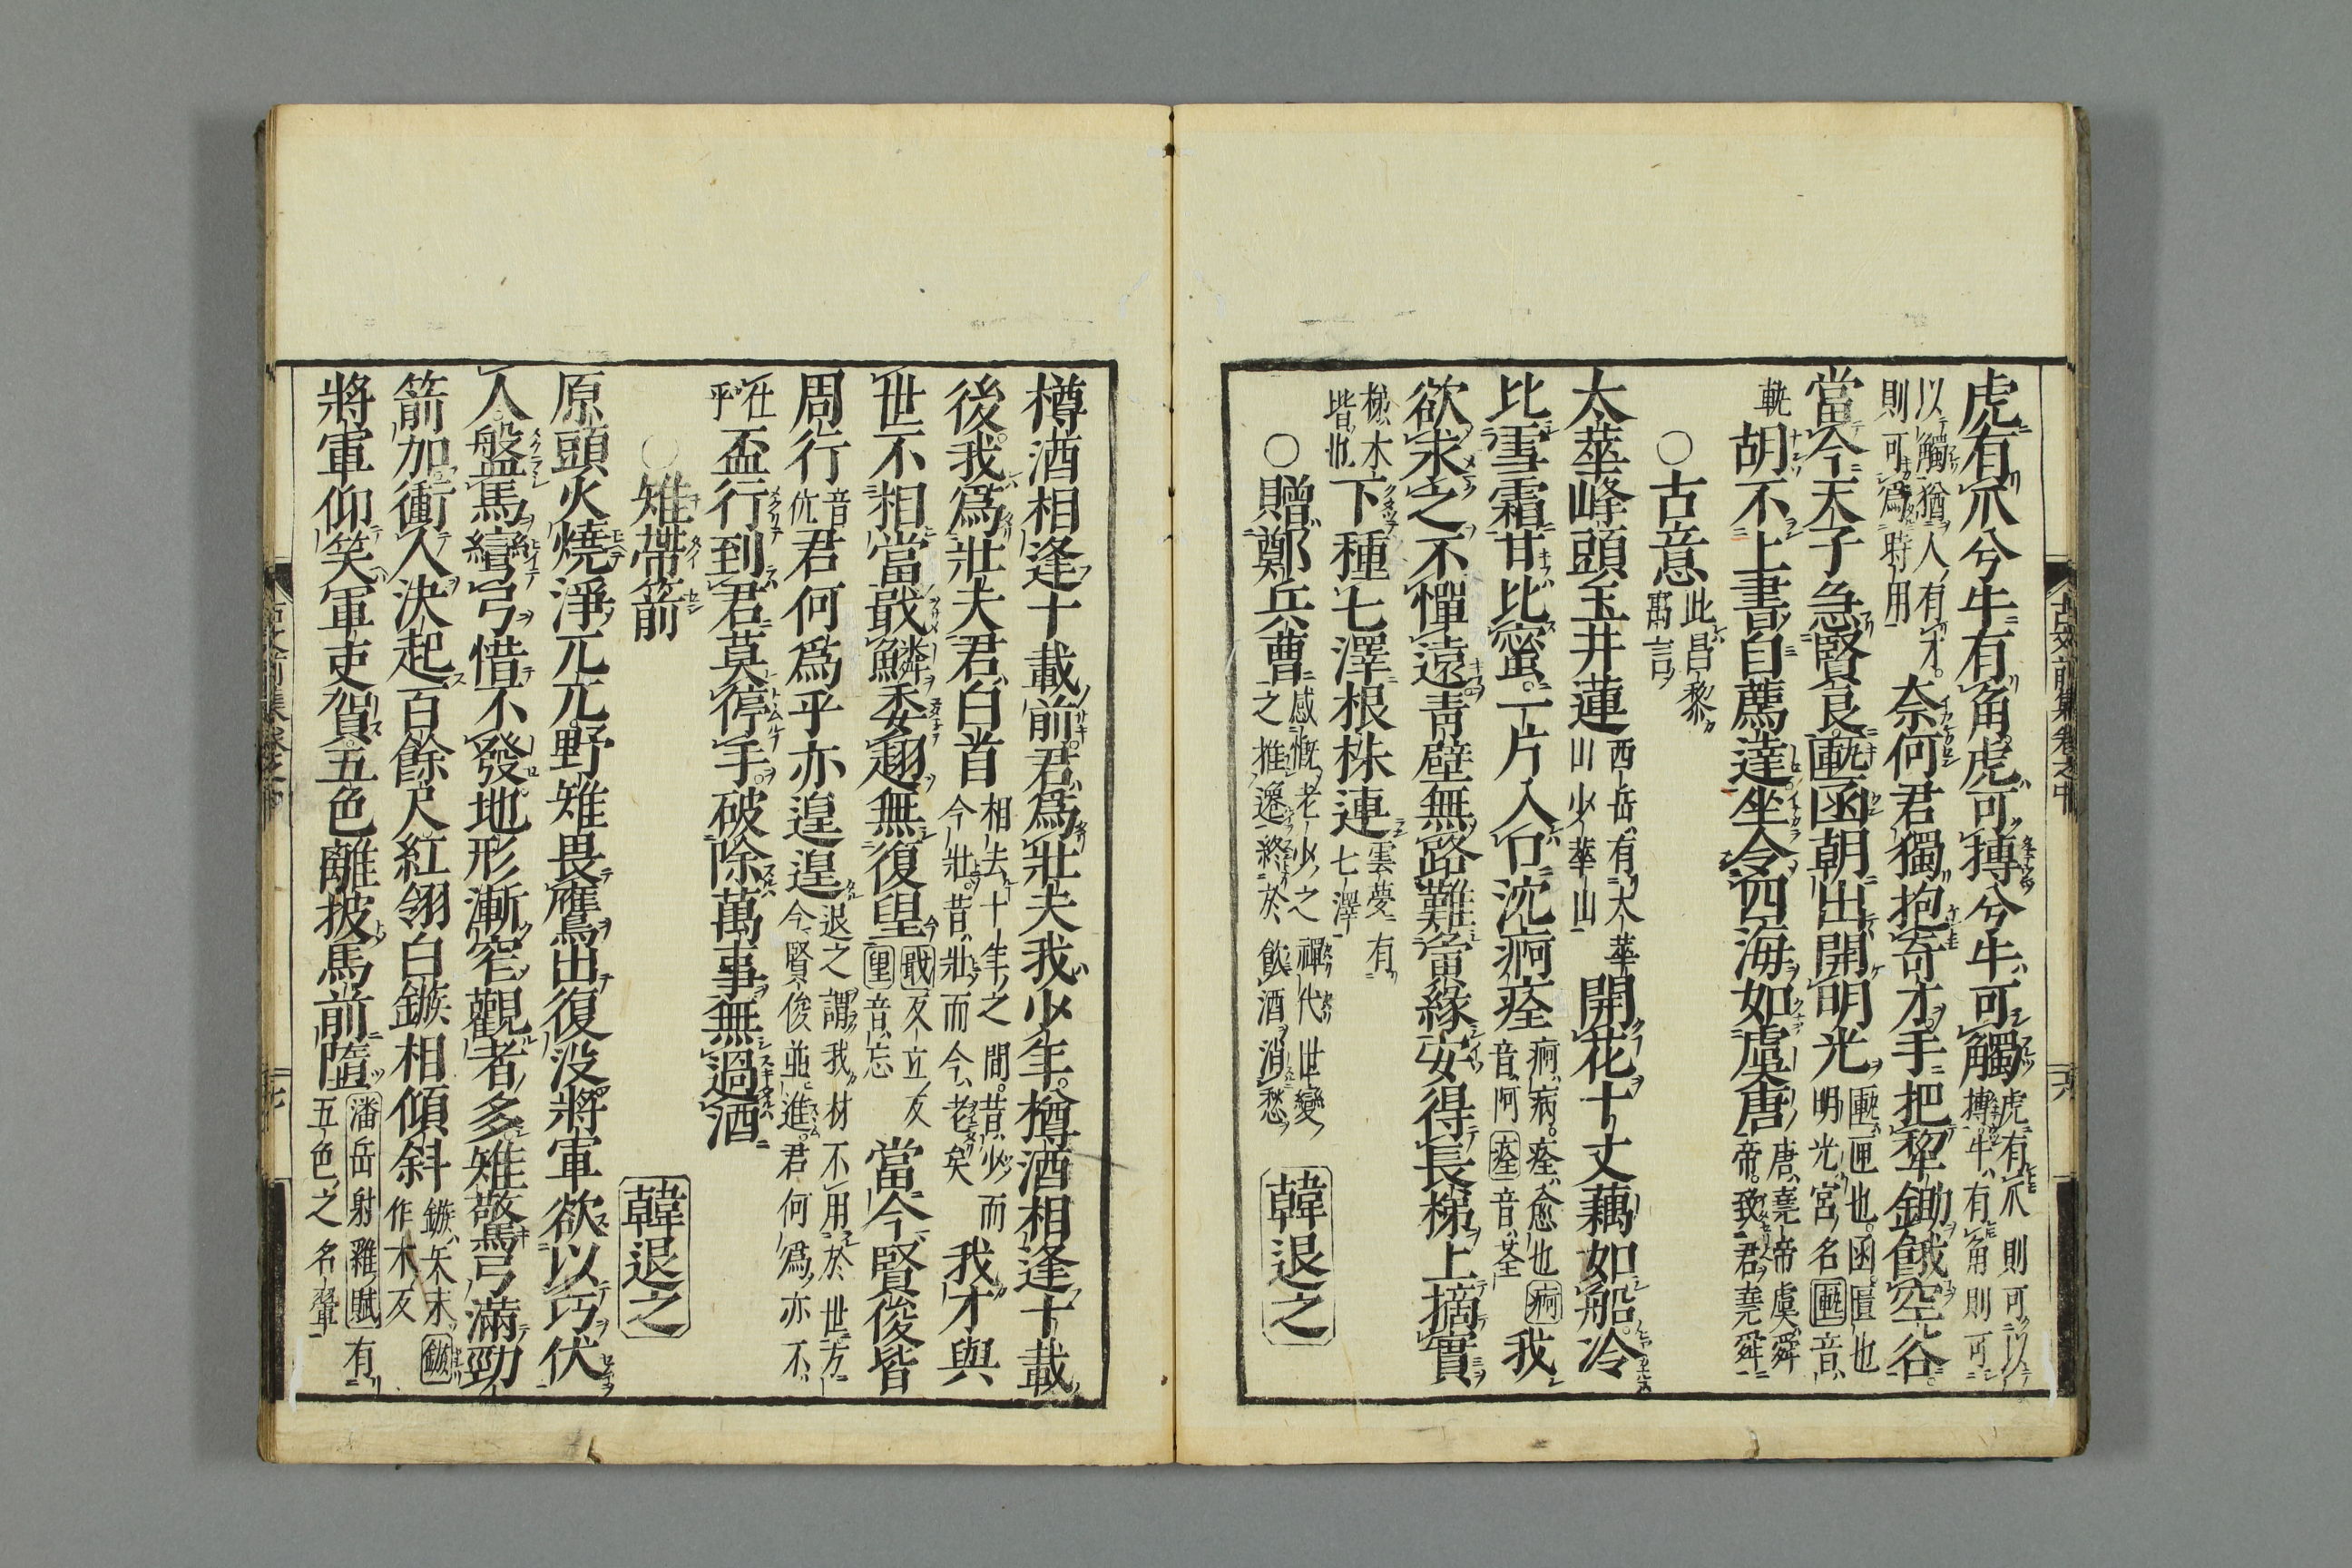 虎有爪兮牛有角虎可搏兮牛可觸虎有爪則可以搏牛有角則可
以觸猶人有才則可爲時用奈何君獨抱奇才手把犂鋤餓空谷
當今天子急賢良匭函朝出開明光匭匣也函匱也明光宮名匭音
軌胡不上書自薦達坐令四海如虞唐唐堯帝虞舜帝致君堯舜
○古意此昌黎寓言
太華峰頭玉井蓮西岳有太華山少華山開花十丈藕如船冷
比雪霜甘比蜜一片入口沈痾痊痾病痊愈也痾音阿痊音荃我
欲求之不憚遠青壁無路難夤緣安得長梯上摘實
梯木皆也下種七澤根株連雲夢有七澤
○贈鄭兵曹感慨老少之禪代世變之推遷終於飲酒消愁韓退之
樽酒相逢十載前君爲壯夫我少年樽酒相逢十載
後我爲壯夫君白首相去十年之間昔少而今壯昔壯而今老矣我才與
世不相當戢鱗委翅無復望戢反立反望音忘當今賢俊皆
周行音伉君何爲乎亦遑遑退之謂我材不用於世方今賢俊並進君何爲亦不
仕乎盃行到君莫停手破除萬事無過酒
○雉帶箭韓退之
原頭火燒淨兀兀野雉畏鷹出復没將軍欲以巧伏
人盤馬彎弓惜不發地形漸窄觀者多雉驚弓滿勁
箭加衝人决起百餘尺紅翎白鏃相傾斜鏃矢末鏃作木反
將軍仰笑軍吏賀五色離披馬前墮潘岳射雉賦有五色之名翬
古文前集卷之中
六
七